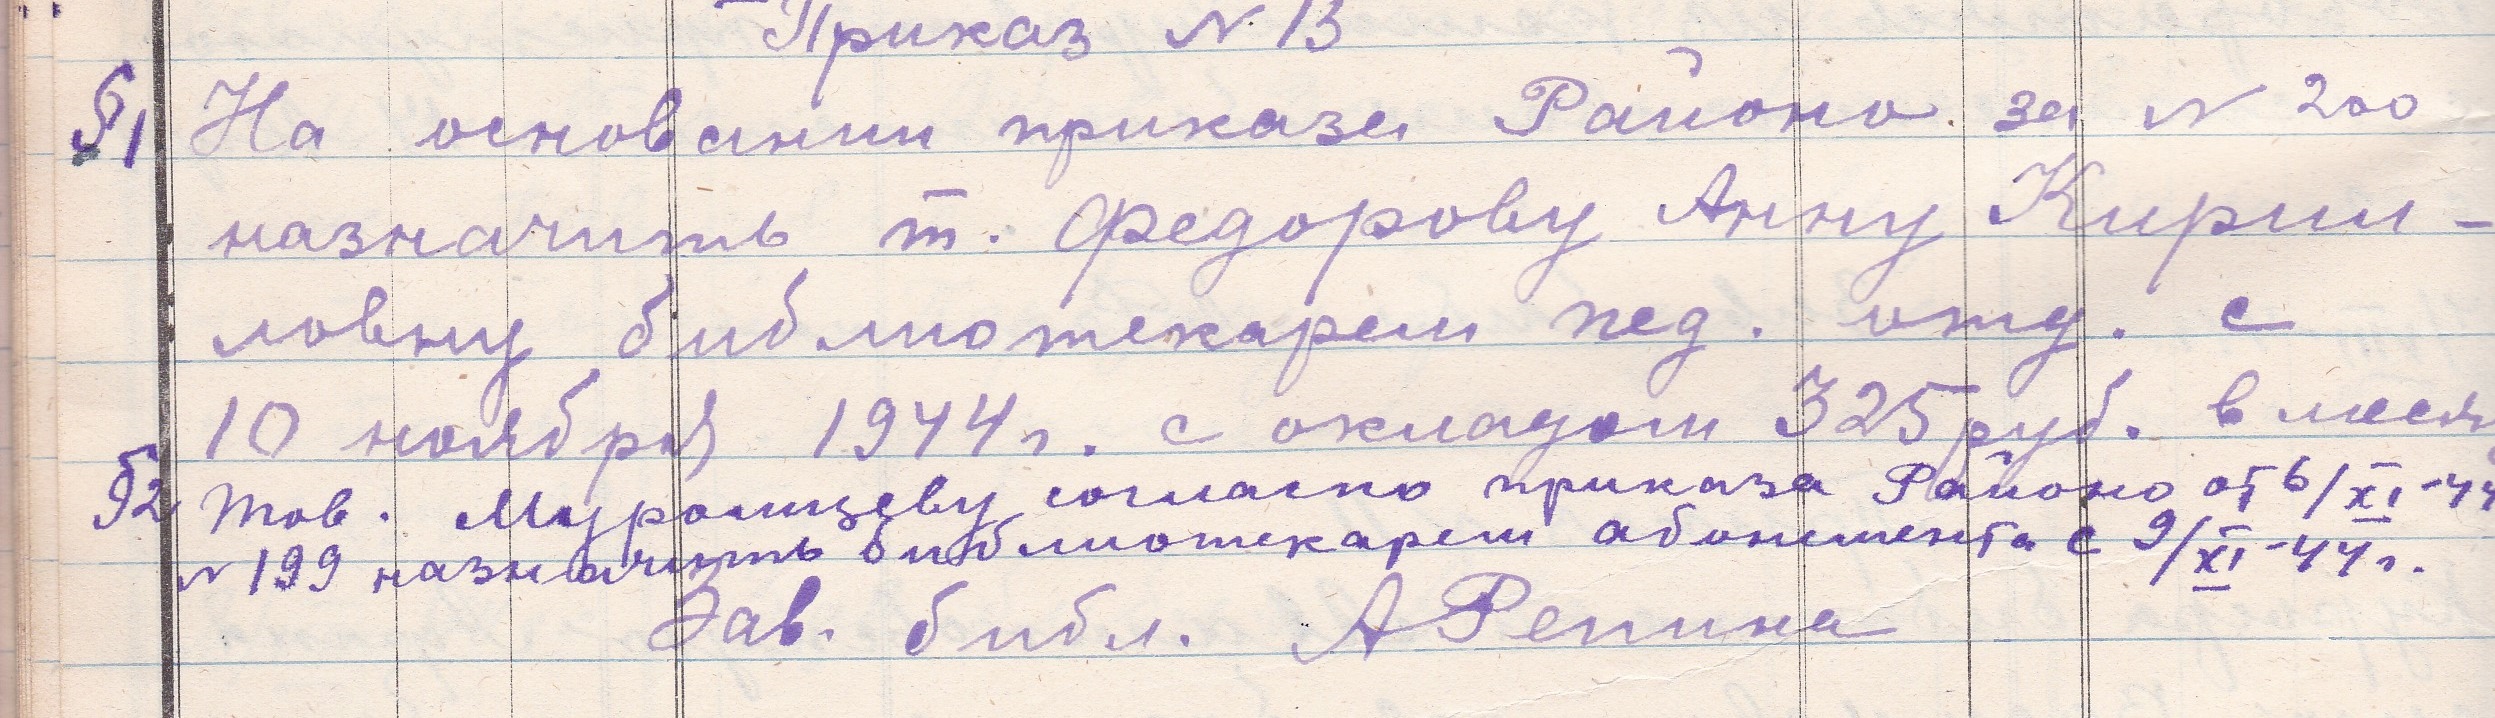 Приказ N 13
§1 На основании приказа Районо за N 200
назначить т. Федорову Анну Кирил-
ловну библиотекарем пед. отд. с
10 ноября 1944 г. с окладом 325 руб. в месяц
§2 Тов. Муромцеву согласно приказа Районо от 6/XI-44
N 199 назначить библиотекарем абонемента с 9/XI-44 г.
Зав. библ. А Репина